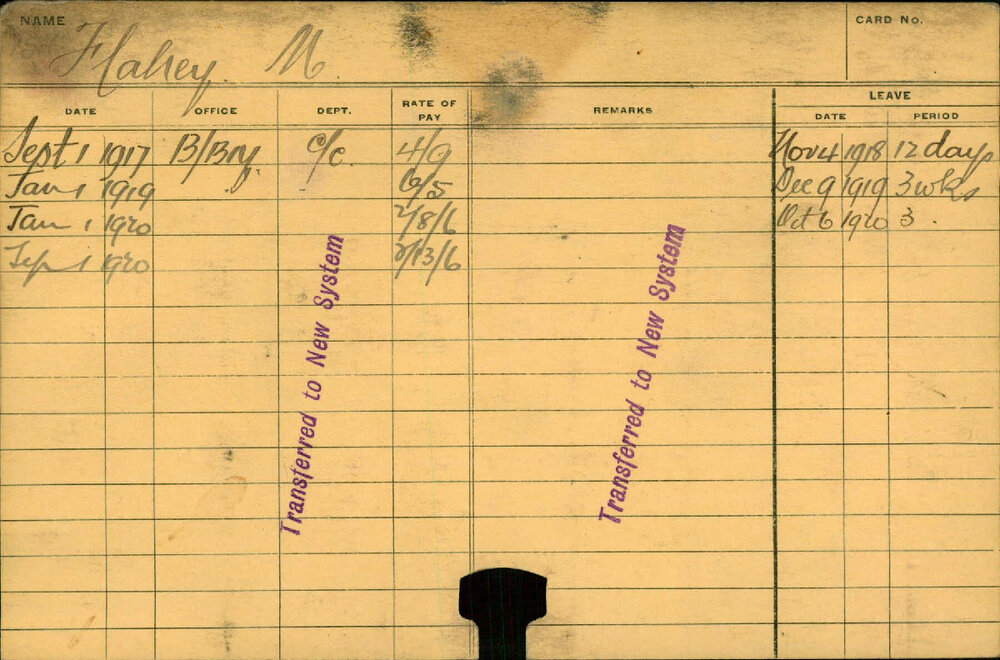 NAME Flahey. M. CARD No.
DATE OFFICE DEPT. RATE OF PAY REMARKS LEAVE
DATE PERIOD
Sept 1 1917 B/Bny. C/c. 4/9 Nov 4 1918 12 days
Jan 1 1919 6/5 Dec 9 1919 3 wks
Jan 1 1920 2/8/6 Oct 6 1920 3 .
Sep 1 1920 2/13/6
Transferred to New System
Transferred to New System